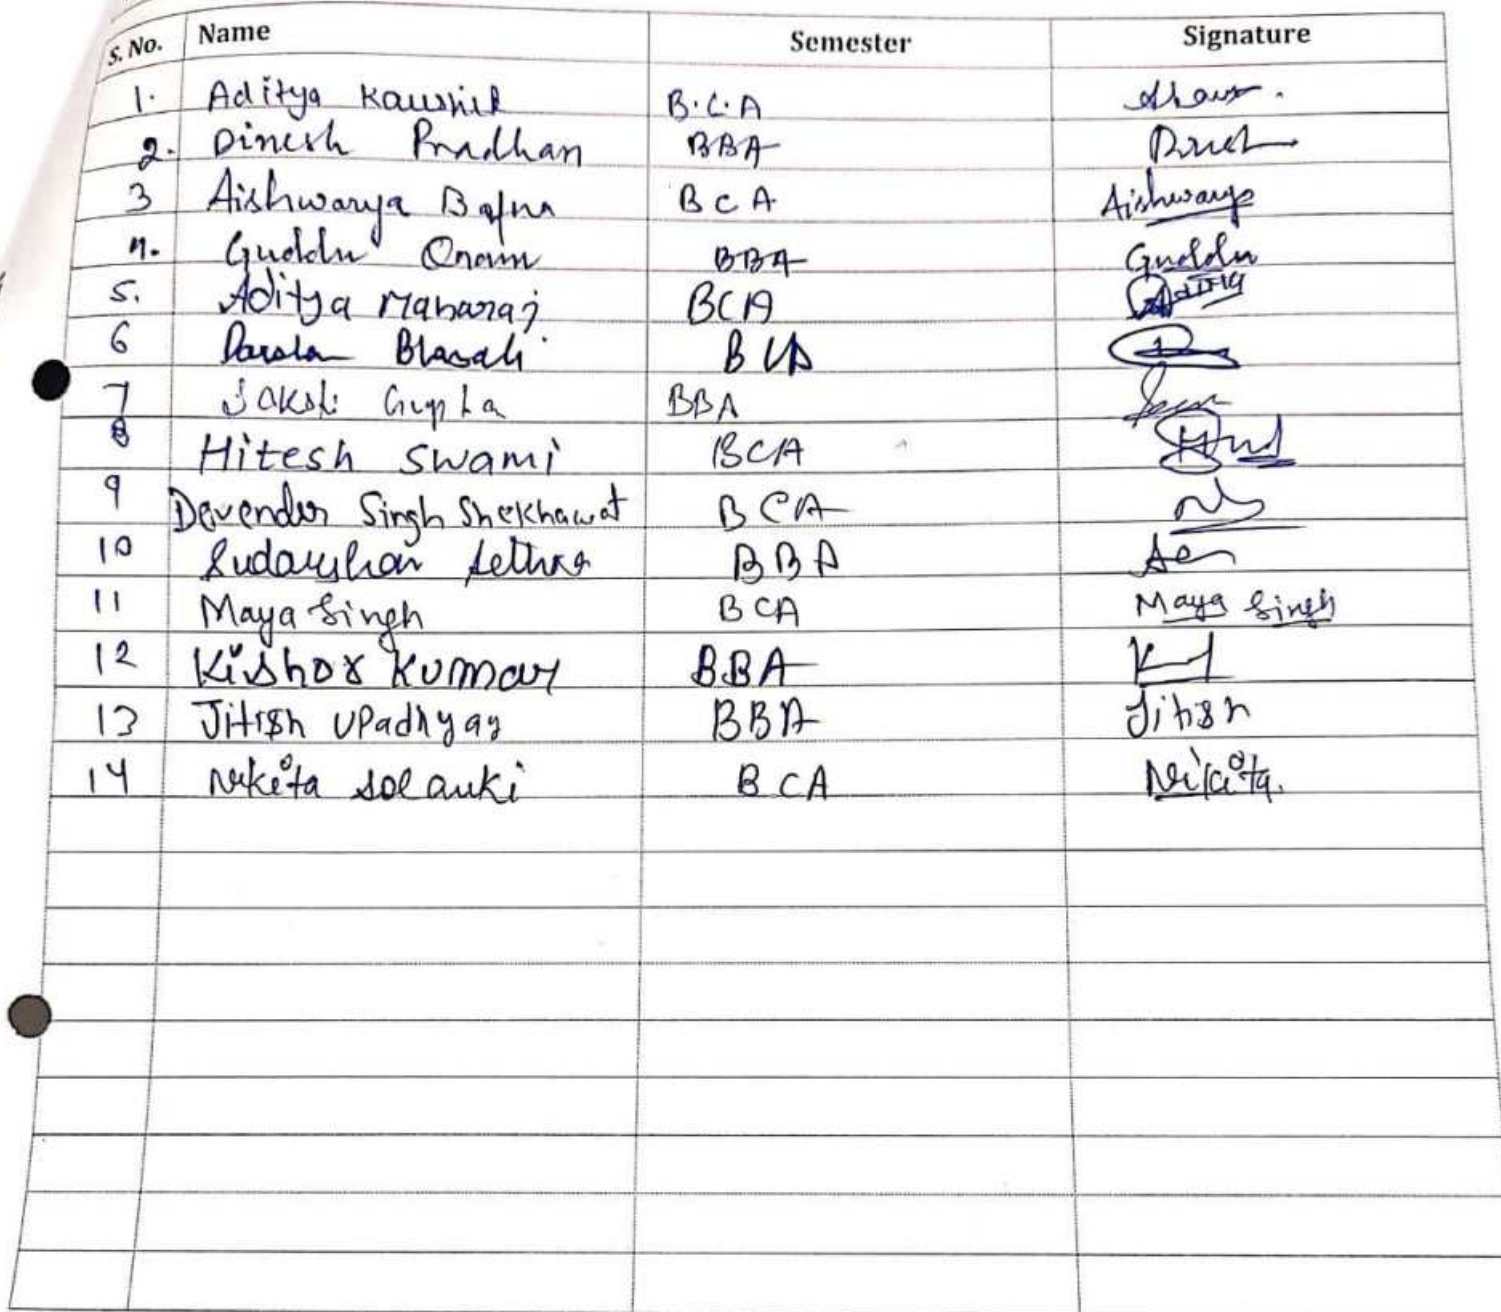 S. No. Name Semester Signature
1. Aditya Kaushik B.C.A
2. Dinesh Pradhan BBA Dinesh
3 Aishwarya Bafna BCA Aishwarya
4. Guddu Oram BBA Guddu
5. Aditya Maharaj BCA Aditya
6 BCA
7 Sakshi Gupta BBA
8 Hitesh Swami BCA
9 Devender Singh Shekhawat BCA
10 Sudarshan BBA
11 Maya Singh BCA Maya Singh
12 Kishor Kumar BBA
13 Jitish Upadhyay BBA Jitish
14 Nikita Solanki BCA Nikita.